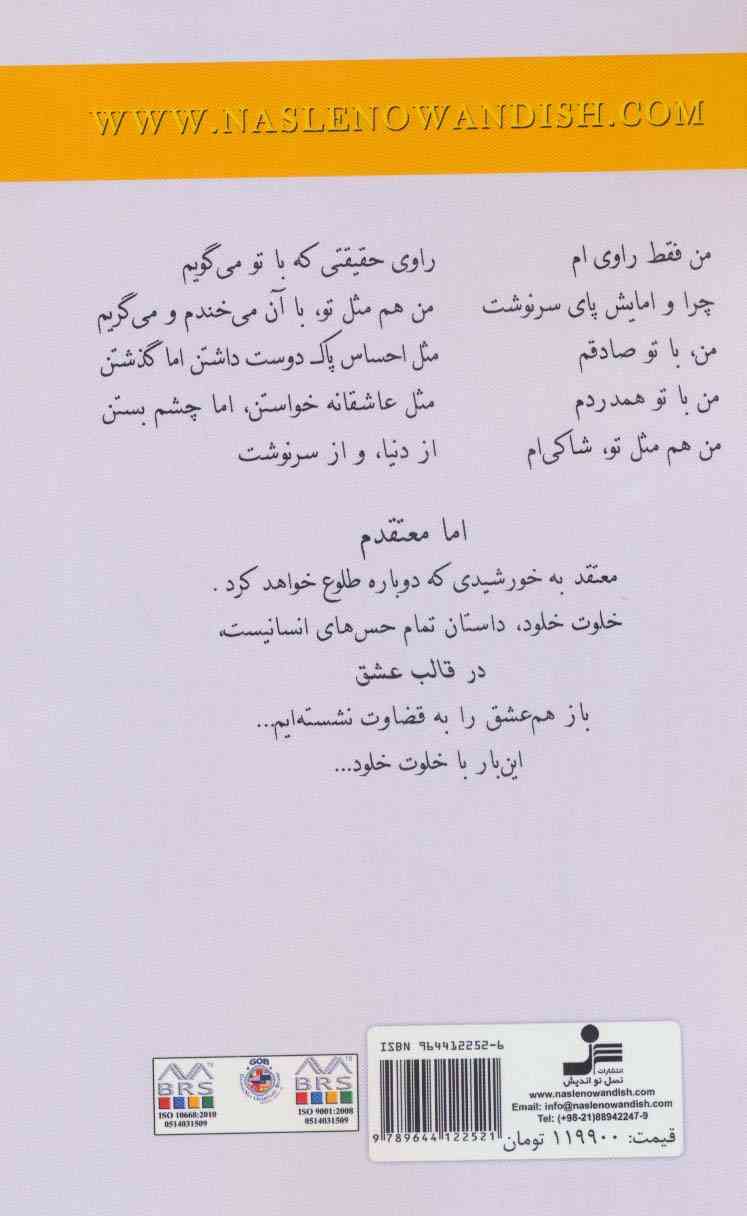 WWW.NASLENOWANDISH.COM
من فقط راوی ام راوی حقیقتی که با تو می‌گویم
چرا و امایش پای سرنوشت من هم مثل تو، با آن می‌خندم و می‌گریم
من، با تو صادقم مثل احساس پاک دوست داشتن اما گذشتن
من با تو همدردم مثل عاشقانه خواستن، اما چشم بستن
من هم مثل تو، شاکی‌ام از دنیا، و از سرنوشت
اما معتقدم
معتقد به خورشیدی که دوباره طلوع خواهد کرد .
خلوت خلود، داستان تمام حس‌های انسانیست،
در قالب عشق
باز هم‌عشق را به قضاوت نشسته‌ایم...
این‌بار با خلوت خلود...
BRS
ISO 10668:2010
0514031509
GOB
BRS
ISO 9001:2008
0514031509
ISBN 964412252-6
9 789644 122521
انتشارات
نسل نو اندیش
www.naslenowandish.com
Email: info@naslenowandish.com
Tel: (+98-21)88942247-9
قیمت: ۱۱۹۹۰۰ تومان